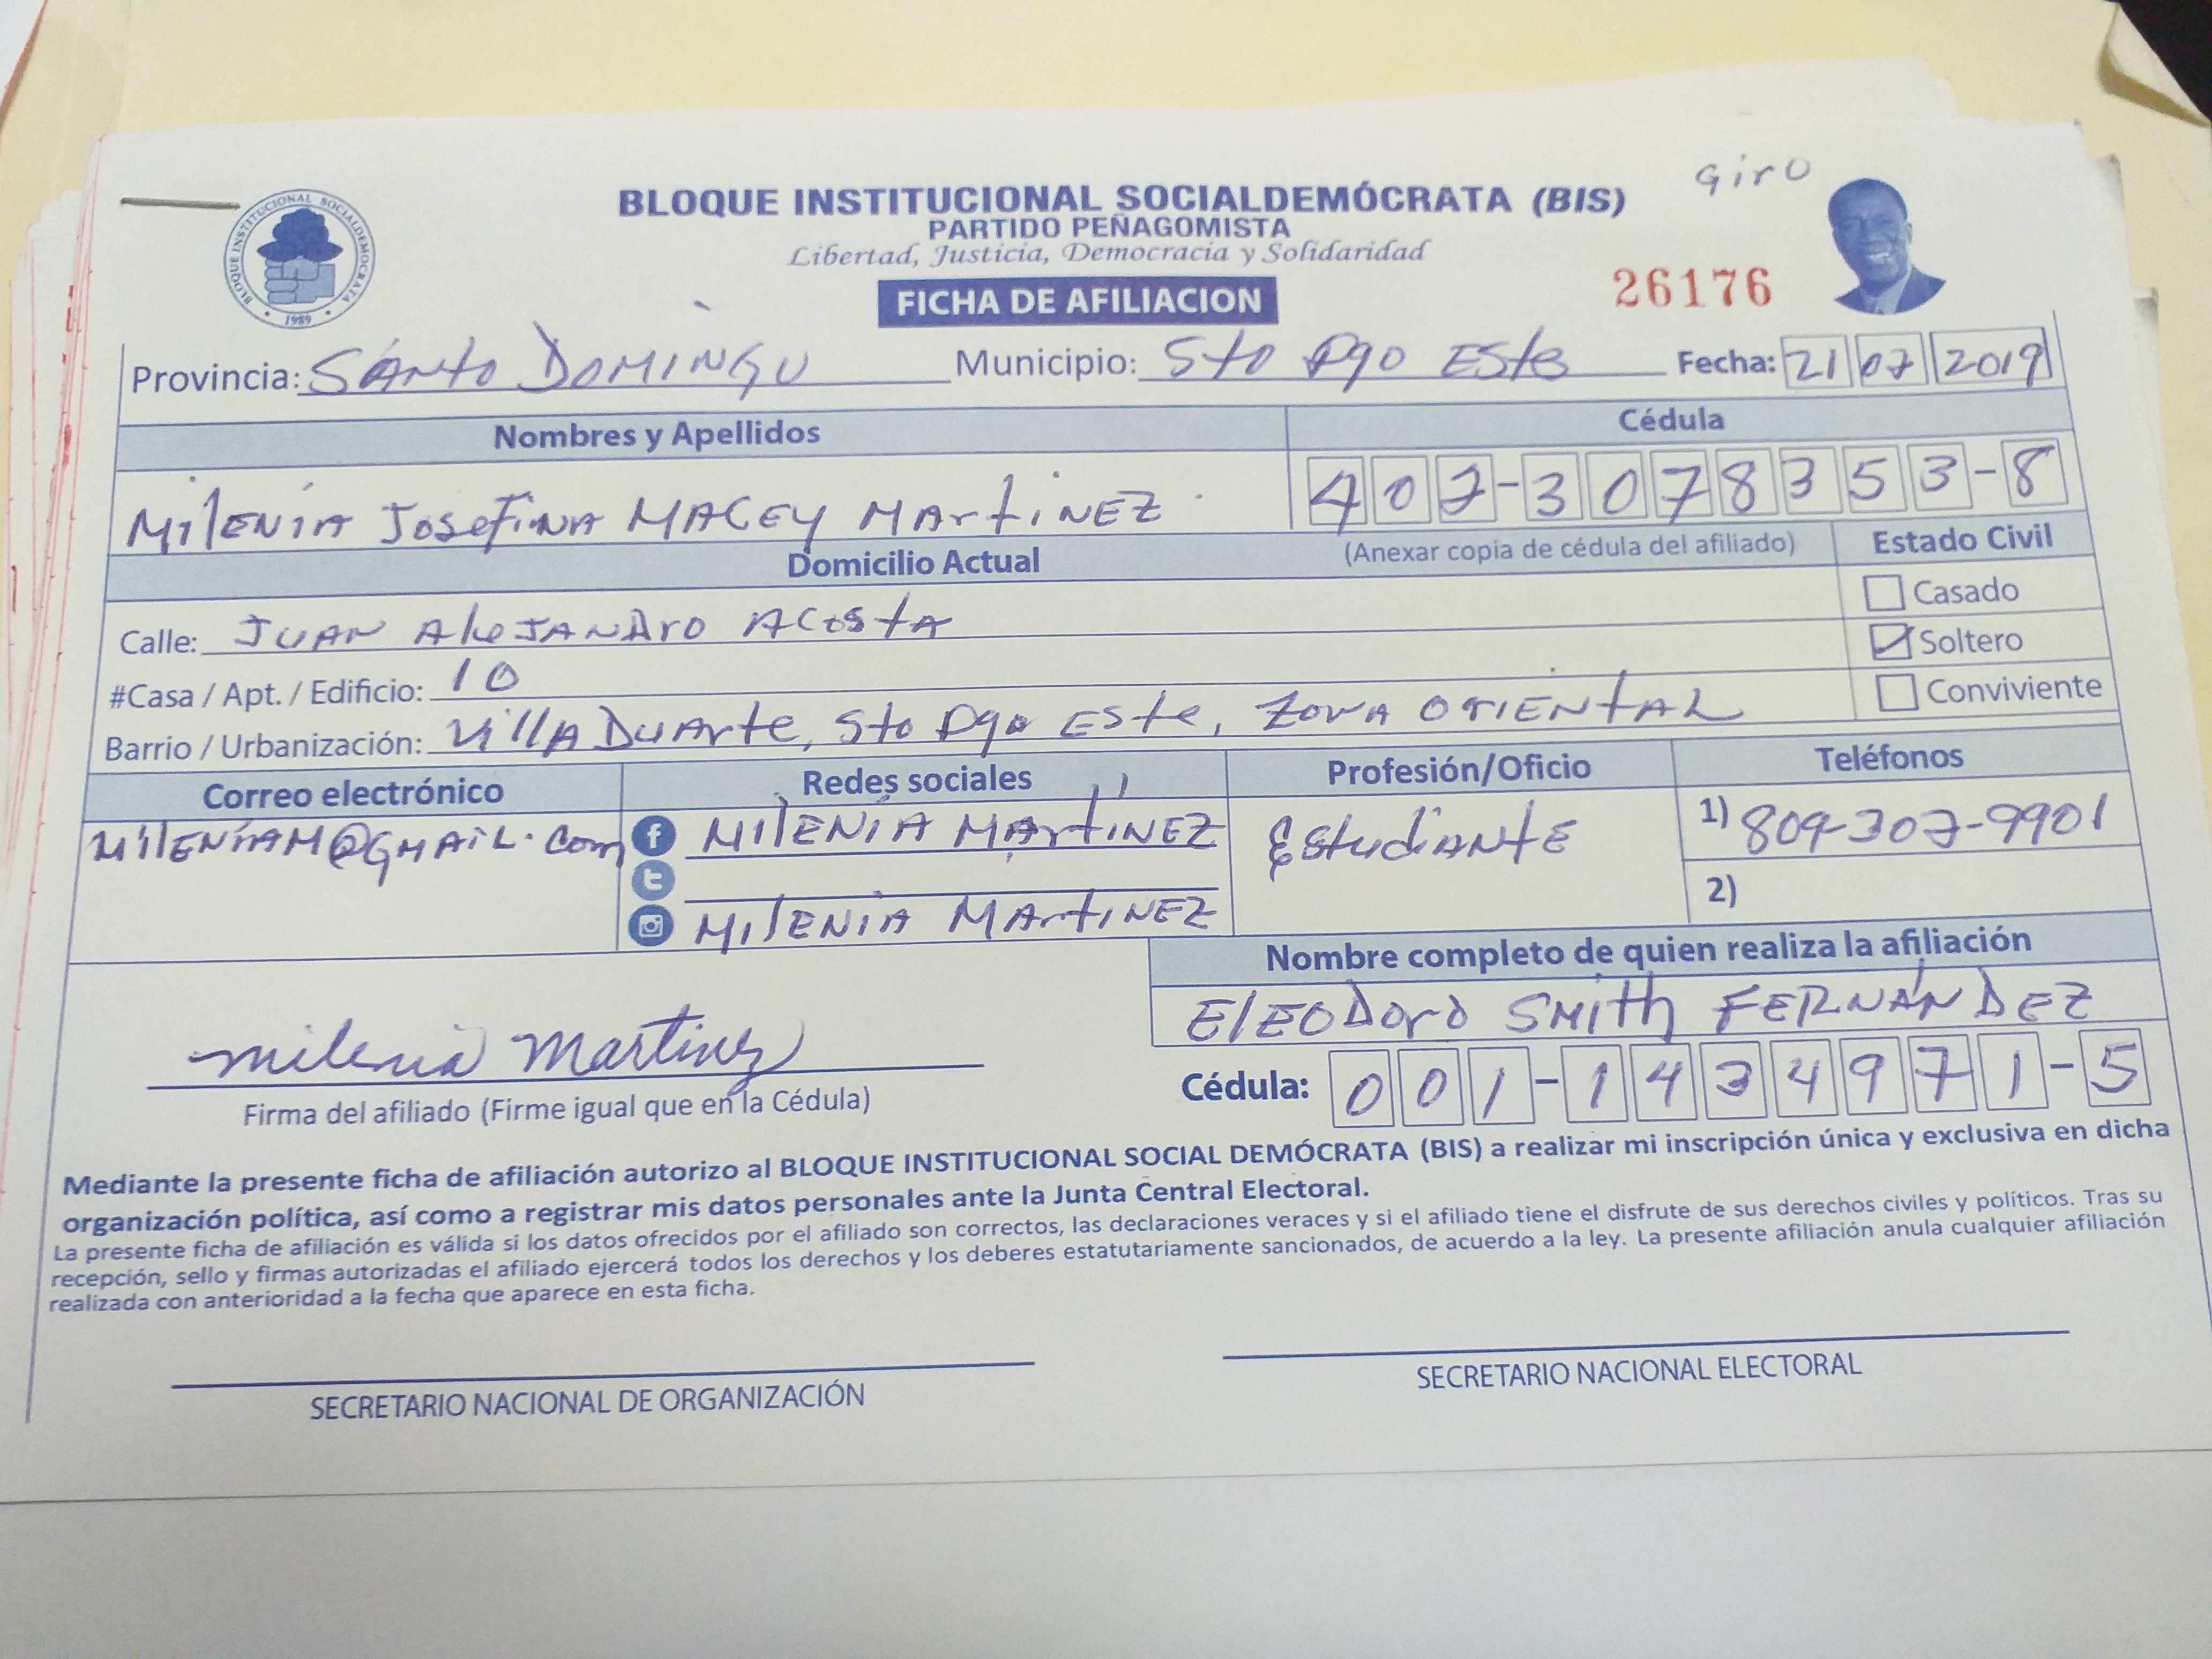 Giro
BLOQUE INSTITUCIONAL SOCIALDEMOCRATA
1989
BLOQUE INSTITUCIONAL SOCIALDEMÓCRATA (BIS)
PARTIDO PEÑAGOMISTA
Libertad, Justicia, Democracia y Solidaridad
FICHA DE AFILIACION
26176
Provincia: SANTO DOMINGO Municipio: Sto Dgo ESte Fecha: 21 07 2019
Nombres y Apellidos Cédula
MilENIA JosefiNA MACEY MArtiNEZ 402-3078353-8
Domicilio Actual (Anexar copia de cédula del afiliado) Estado Civil
Casado
Calle: JUAN AleJANDro ACostA
Soltero
#Casa / Apt. / Edificio: 10
Conviviente
Barrio / Urbanización: VillA DuArte, Sto Dgo Este, ZONA OrIENtAL
Correo electrónico Redes sociales Profesión/Oficio Teléfonos
MilENiAM@GMAiL.Com MilENIA MArtiNEZ EstudiANtE 1) 809-307-9901
2)
MilENIA MArtiNEZ
Nombre completo de quien realiza la afiliación
ElEODoro SMith FERNÁNDEZ
milenia Martinez
Cédula: 001-1434971-5
Firma del afiliado (Firme igual que en la Cédula)
Mediante la presente ficha de afiliación autorizo al BLOQUE INSTITUCIONAL SOCIAL DEMÓCRATA (BIS) a realizar mi inscripción única y exclusiva en dicha
organización política, así como a registrar mis datos personales ante la Junta Central Electoral.
La presente ficha de afiliación es válida si los datos ofrecidos por el afiliado son correctos, las declaraciones veraces y si el afiliado tiene el disfrute de sus derechos civiles y políticos. Tras su
recepción, sello y firmas autorizadas el afiliado ejercerá todos los derechos y los deberes estatutariamente sancionados, de acuerdo a la ley. La presente afiliación anula cualquier afiliación
realizada con anterioridad a la fecha que aparece en esta ficha.
SECRETARIO NACIONAL DE ORGANIZACIÓN SECRETARIO NACIONAL ELECTORAL